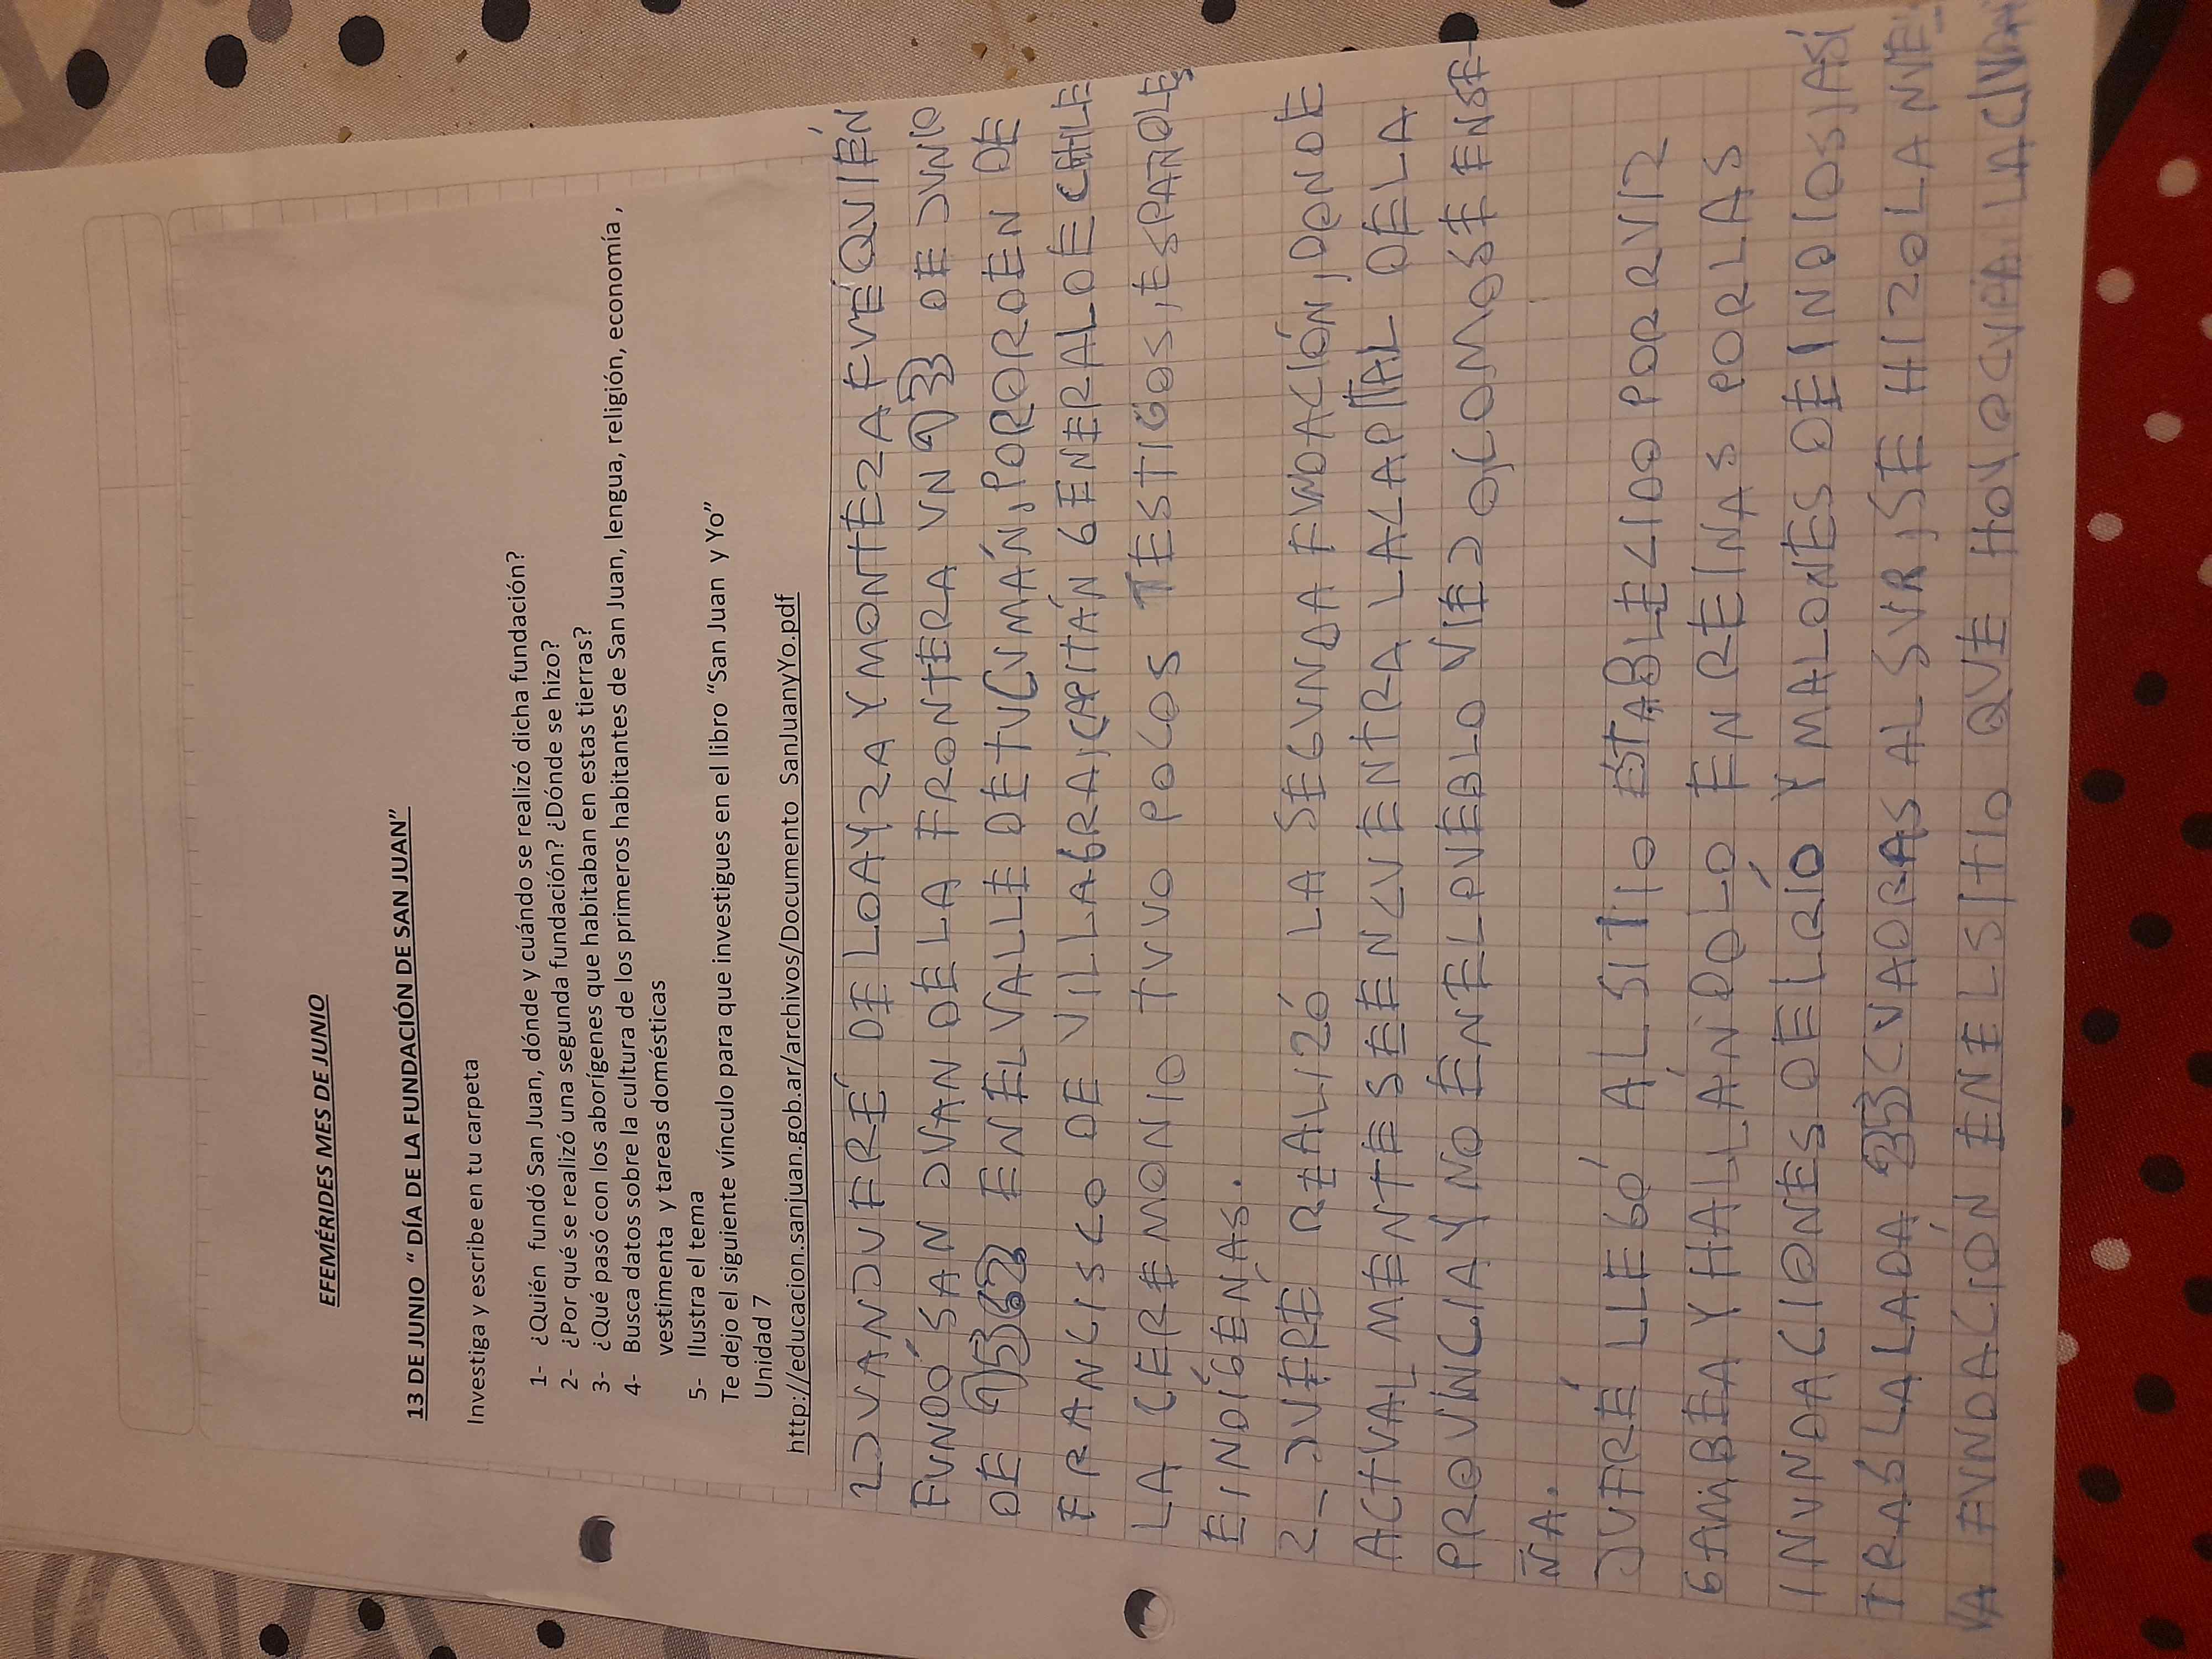 EFEMÉRIDES MES DE JUNIO
13 DE JUNIO “ DÍA DE LA FUNDACIÓN DE SAN JUAN”
Investiga y escribe en tu carpeta
1- ¿Quién fundó San Juan, dónde y cuándo se realizó dicha fundación?
2- ¿Por qué se realizó una segunda fundación? ¿Dónde se hizo?
3- ¿Qué pasó con los aborígenes que habitaban en estas tierras?
4- Busca datos sobre la cultura de los primeros habitantes de San Juan, lengua, religión, economía ,
vestimenta y tareas domésticas
5- Ilustra el tema
Te dejo el siguiente vínculo para que investigues en el libro “San Juan y Yo”
Unidad 7
http://educacion.sanjuan.gob.ar/archivos/Documento SanJuanyYo.pdf
JUAN JUFRÉ DE LOAYZA Y MONTEZA FUÉ QUIÉN
FUNDÓ SAN JUAN DE LA FRONTERA UN 13 DE JUNIO
DE 1562 EN EL VALLE DE TUCUMAÁN, POR ORDEN DE
FRANCISCO DE VILLAGRA, CAPITÁN GENERAL DE CHILE
LA CEREMONIO TUVO POCOS TESTIGOS, ESPAÑOLES
E INDÍGENAS.
2_ JUFRE REALIZÓ LA SEGUNDA FUNDACIÓN, DONDE
ACTUALMENTE SE ENCUENTRA LA LAPITAL DE LA
PROVÍNCIA Y NO EN EL PUEBLO VIEJO, COMO SE ENSE-
ÑA.
JUFRÉ LLEGÓ AL SITIO ESTABLECIDO POR RUIZ
GAMBEA Y HALLÁNDOLO EN REINAS POR LAS
INUNDACIONES DEL RÍO Y MALONES DE INDIOS, ASÍ
TRASLADADA 25 CUADRAS AL SUR, SE HIZO LA NUE-
VA FUNDACIÓN EN EL SITIO QUE HOY OCUPA LA CIUDAD